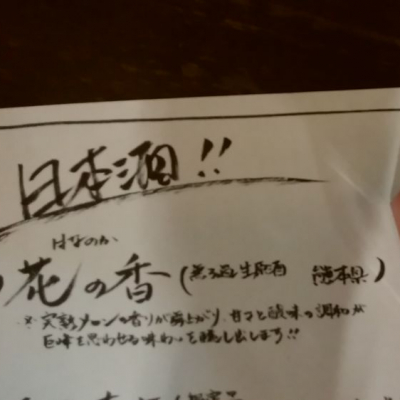 日本酒!!
はなのか
花の香(無ろ過生原酒 熊本県)
※完熟メロンの香りが立上がり、甘さと酸味の調和が
巨峰を思わせる味わいを醸し出します!!